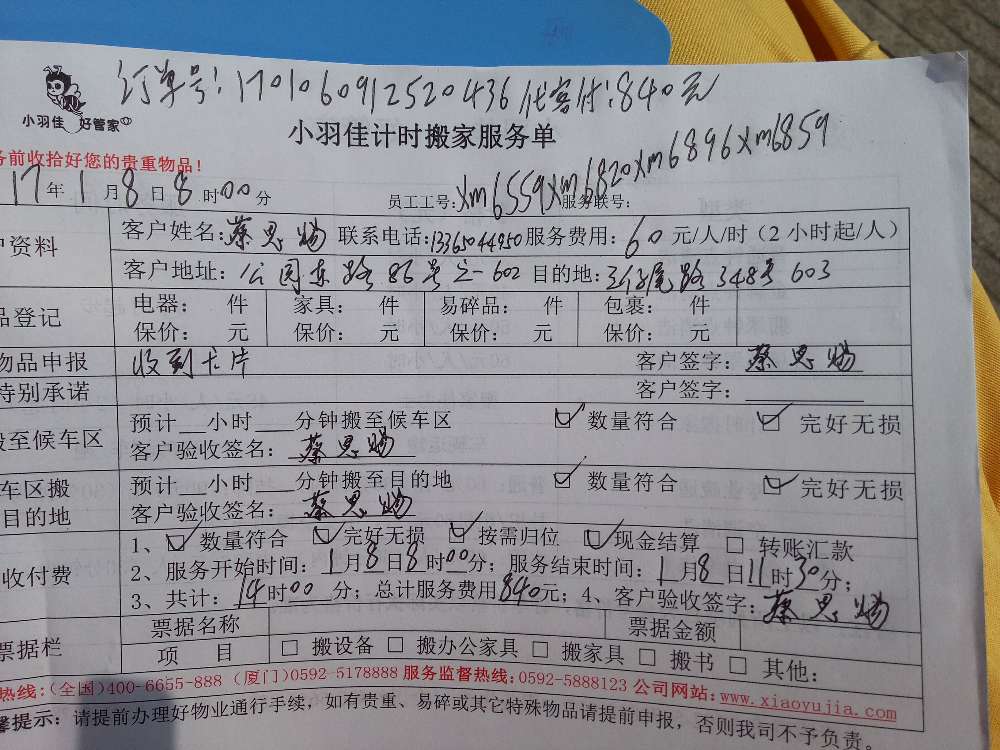 订单号:1701060912520436代客付:840元
小羽佳 好管家
小羽佳计时搬家服务单
务前收拾好您的贵重物品!
17年1月8日8时00分 员工工号:xm6559xm6820xm6896xm6859 服务联号:
户资料 客户姓名:蔡思 联系电话:13365044950 服务费用:60元/人/时(2小时起/人)
客户地址:公园东路86号之一602 目的地: 尾路348号603
品登记 电器: 件 家具: 件 易碎品: 件 包裹: 件
保价: 元 保价: 元 保价: 元 保价: 元
物品申报 收到卡片 客户签字:蔡思
特别承诺 客户签字:
搬至候车区 预计 小时 分钟搬至候车区 数量符合 完好无损
客户验收签名:蔡思
车区搬 预计 小时 分钟搬至目的地 数量符合 完好无损
目的地 客户验收签名:蔡思
收付费 1、数量符合 完好无损 按需归位 现金结算 转账汇款
2、服务开始时间:1月8日8时00分;服务结束时间:1月8日11时30分;
3、共计:14时00分;总计服务费用840元;4、客户验收签字:蔡思
票据栏 票据名称 票据金额
项 目 搬设备 搬办公家具 搬家具 搬书 其他:
热线:(全国)400-6655-888 (厦门)0592-5178888 服务监督热线:0592-5888123 公司网站:www.xiaoyujia.com
馨提示:请提前办理好物业通行手续,如有贵重、易碎或其它特殊物品请提前申报,否则我司不予负责。